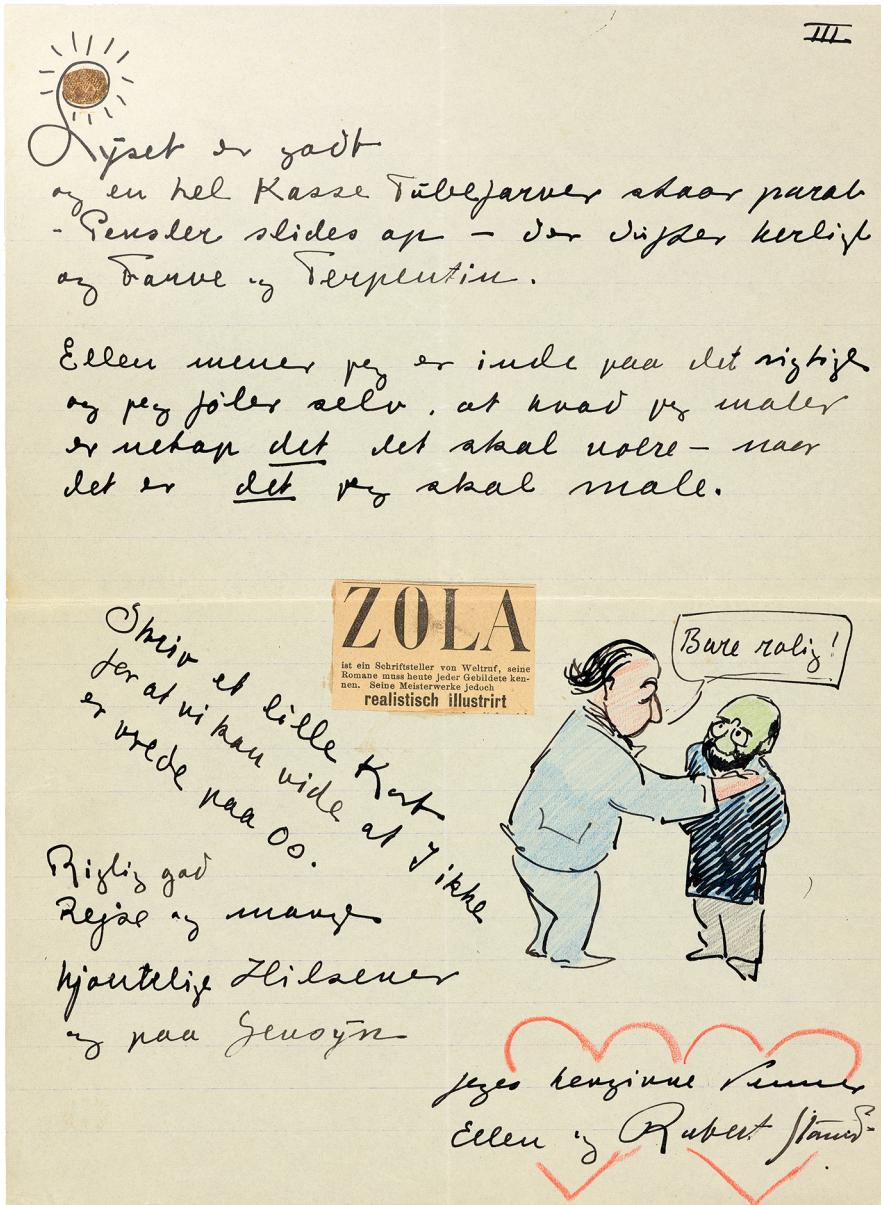 III.
Lyset er godt
og en hel Kasse Tubefarver staar parat
- Pensler slides op - der dufter herligt
og Farve og Terpentin.
Ellen mener jeg er inde paa det rigtige
og jeg føler selv, at hvad jeg maler
er netop det det skal være - naar
det er det jeg skal male.
ZOLA
ist ein Schriftsteller von Weltruf, seine
Romane muss heute jeder Gebildete ken-
nen. Seine Meisterwerke jedoch
realistisch illustrirt
Bare rolig!
Skriv et lille Kort
for at vi kan vide at I ikke
er vrede paa os.
Rigtig god
Rejse og mange
hjertelige Hilsener
og paa Gensyn
hengivne Venner
Ellen og Robert